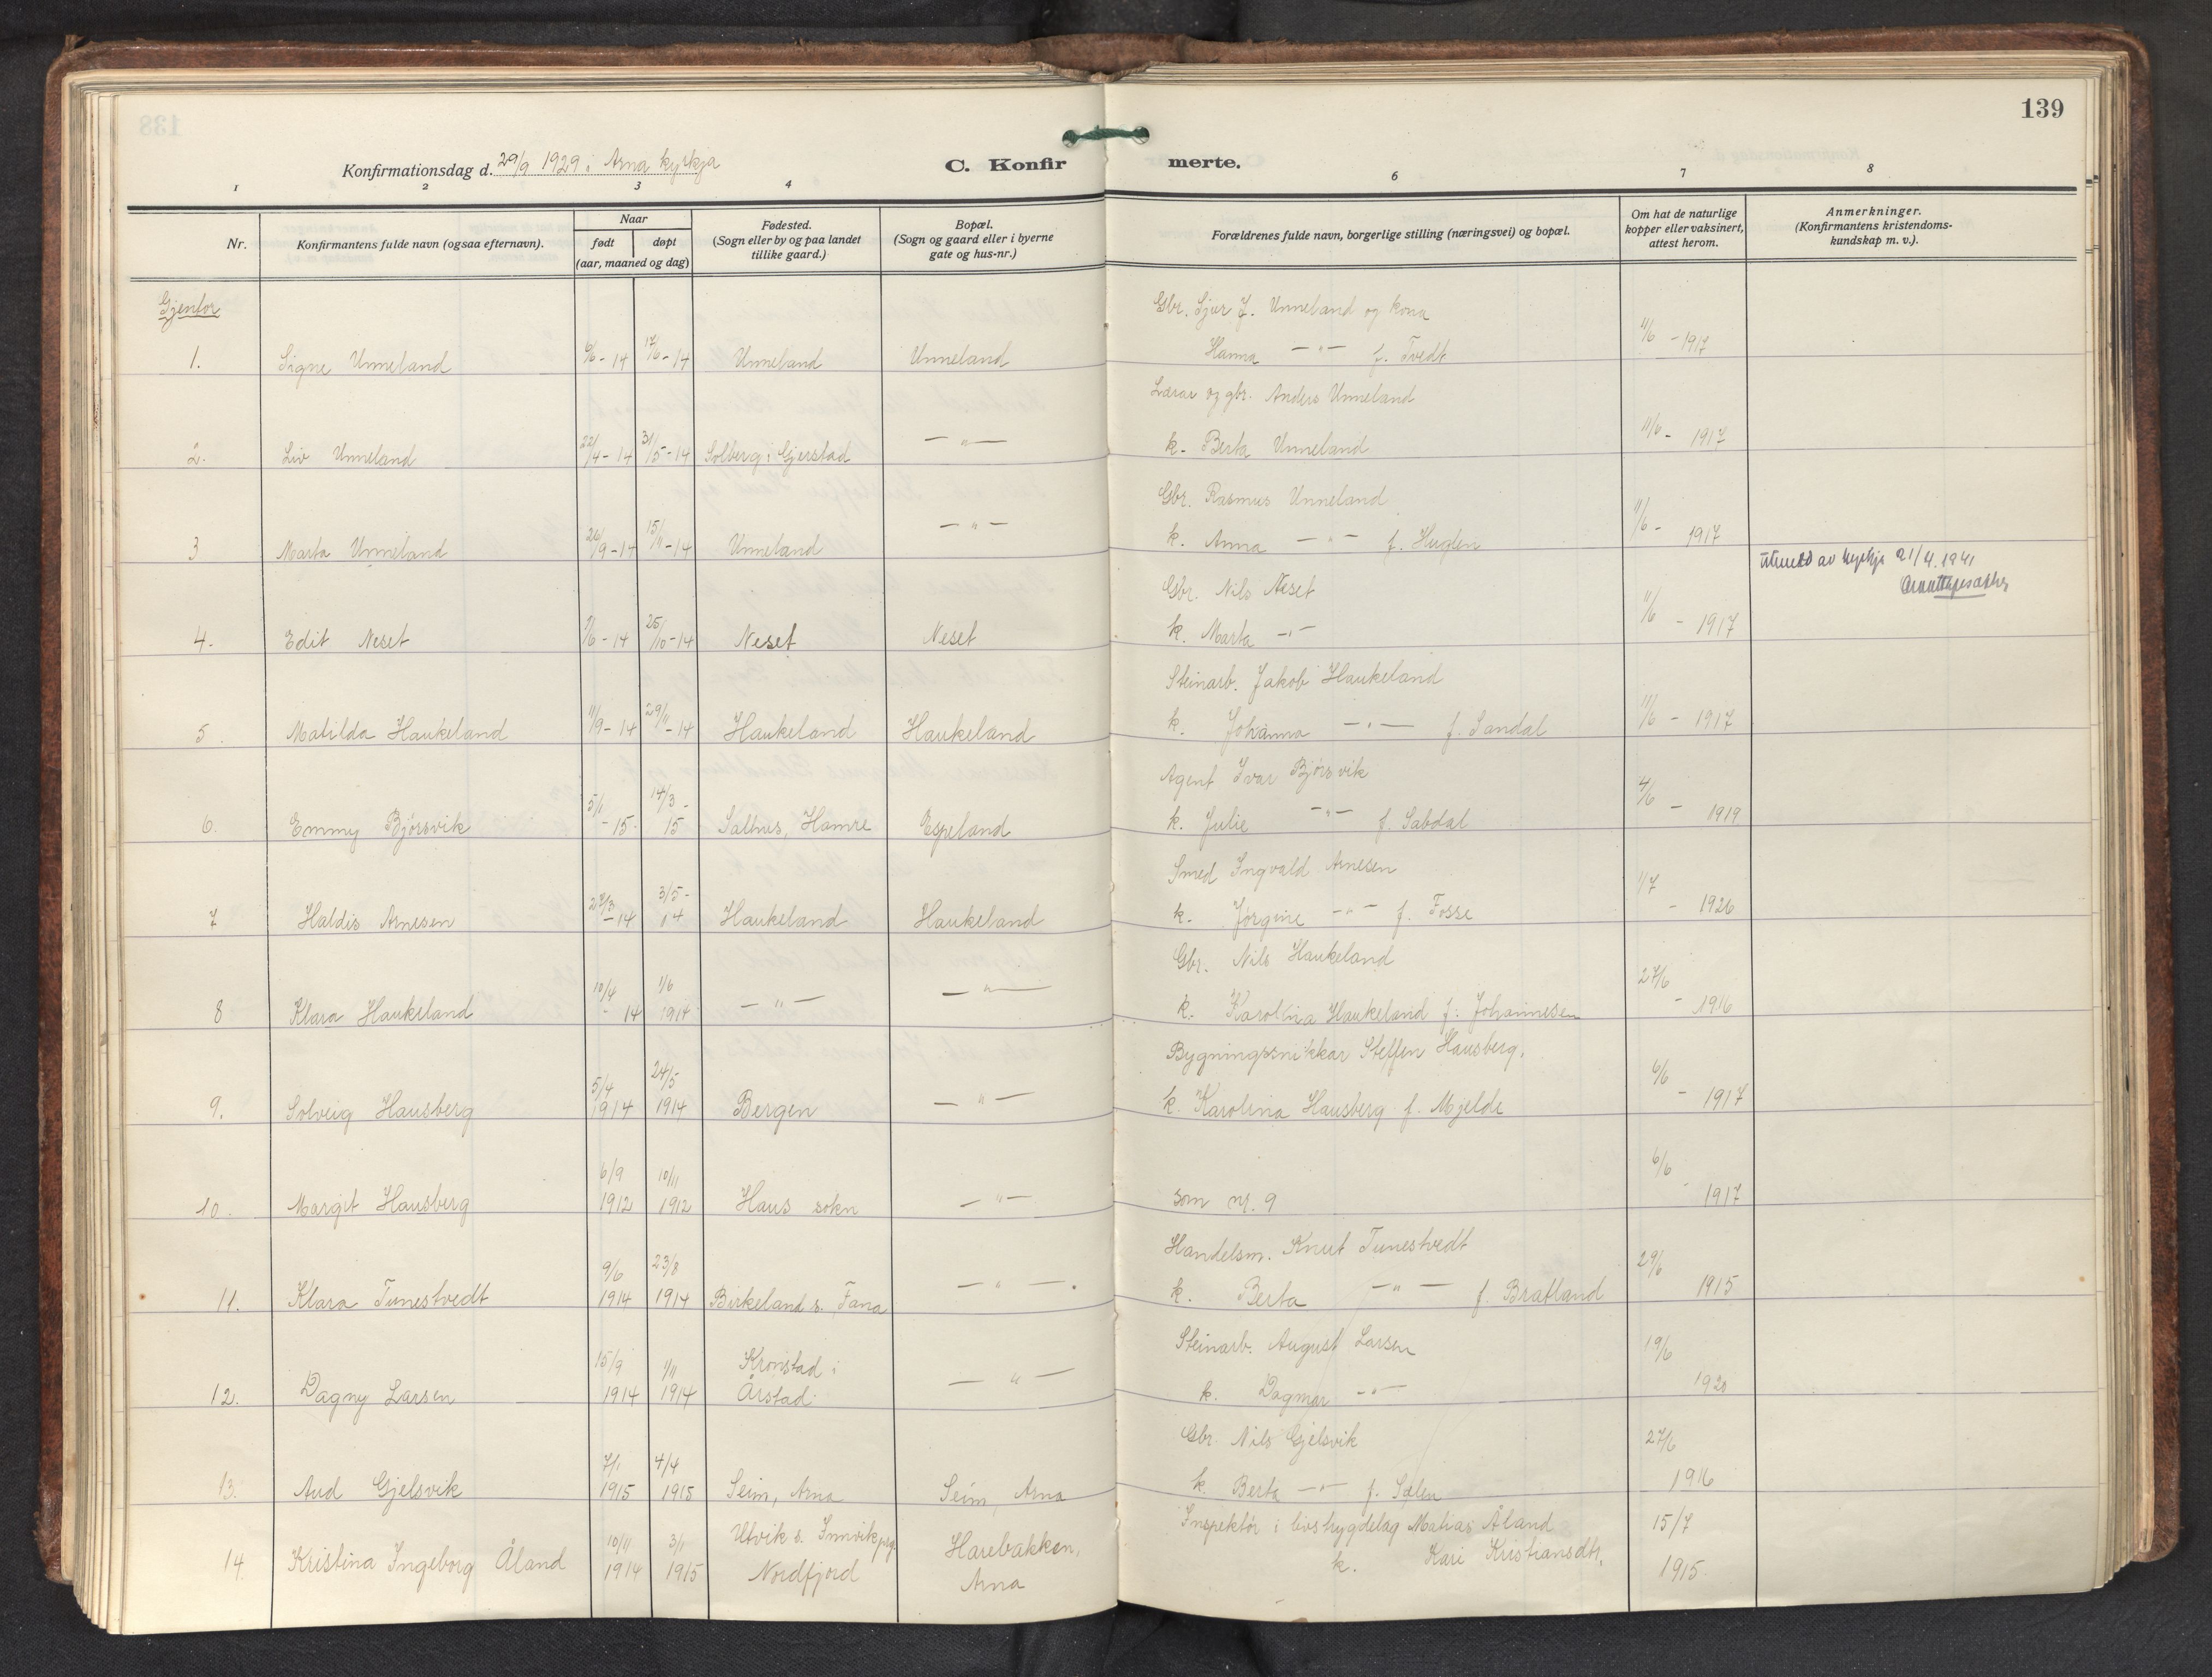 139
Konfirmationsdag d. 29/9 1929 i Arna kyrkja
C. Konfirmerte.
1 2 3 4 6 7 8
Nr.
Konfirmantens fulde navn (ogsaa efternavn).
Naar
født
døpt
(aar, maaned og dag)
Fødested.
(Sogn eller by og paa landet
tillike gaard.)
Bopæl.
(Sogn og gaard eller i byerne
gate og hus-nr.)
Forældrenes fulde navn, borgerlige stilling (næringsvei) og bopæl.
Om hat de naturlige
kopper eller vaksinert,
attest herom.
Anmerkninger.
(Konfirmantens kristendoms-
kundskap m. v.).
Gjentor
Gbr. Sjur J. Unneland og kona
1. Signe Unneland 6/6 - 14 17/6 - 14 Unneland Unneland Hanna —"— f. Tvedt 11/6 - 1917
Lærar og gbr. Anders Unneland
2. Liv Unneland 22/4 - 14 31/5 - 14 Solberg i Gjerstad —"— k. Berta Unneland 11/6 - 1917
Gbr. Rasmus Unneland
3 Marta Unneland 26/9 - 14 15/11 - 14 Unneland —"— k. Anna —"— f. Huglen 11/6 - 1917
Utmeld av kyrkja 21/4. 1941
Gbr. Nils Neset
4. Edit Neset /6 - 14 25/10 - 14 Neset Neset k. Marta —"— 11/6 - 1917
Steinarb. Jakob Haukeland
5. Matilda Haukeland 11/9 - 14 29/11 - 14 Haukeland Haukeland k. Johanna —"— f. Sandal 11/6 - 1917
Agent Ivar Bjørsvik
6. Emmy Bjørsvik 5/1 - 15 14/3 - 15 Salhus, Hamre Espeland k. Julie —"— f. Sabdal 4/6 - 1919
Smed Ingvald Arnesen
7 Haldis Arnesen 27/3 - 14 3/5 - 14 Haukeland Haukeland k. Jørgine —"— f. Fosse 1/7 - 1926
Gbr. Nils Haukeland
8 Klara Haukeland 10/4 - 14 1/6 1914 —"— —"— k. Karolina Haukeland f. Johannesen 27/6 - 1916
Bygningssnikkar Steffen Hausberg,
9. Solveig Hausberg 5/4 1914 24/5 1914 Bergen —"— k. Karolina Hausberg f. Mjelde 6/6 - 1917
10. Margit Hausberg 6/9 1912 10/11 1912 Haus sokn —"— som nr. 9 6/6 - 1917
Handelsm. Knut Tunestvedt
11. Klara Tunestvedt 9/6 1914 23/8 1914 Birkeland s. Fana —"—. k. Berta —"— f. Bratland 29/6 1915
Steinarb. August Larsen
12. Dagny Larsen 15/9 1914 1/11 1914 Kronstad i Årstad. —"— k. Dagmar —"— 19/6 1920
Gbr. Nils Gjelsvik
13. Aud Gjelsvik 7/1 1915 4/4 1915 Seim, Arna Seim, Arna k. Berta —"— f. Sælen 27/6 1916
Inspektør i livstrygdelag Matias Åland
14. Kristina Ingeborg Åland 10/11 1914 3/1 1915 Utvik s. Innvik prg. Nordfjord Harebakken, Arna k. Kari Kristiansdtr. 15/7 1915.